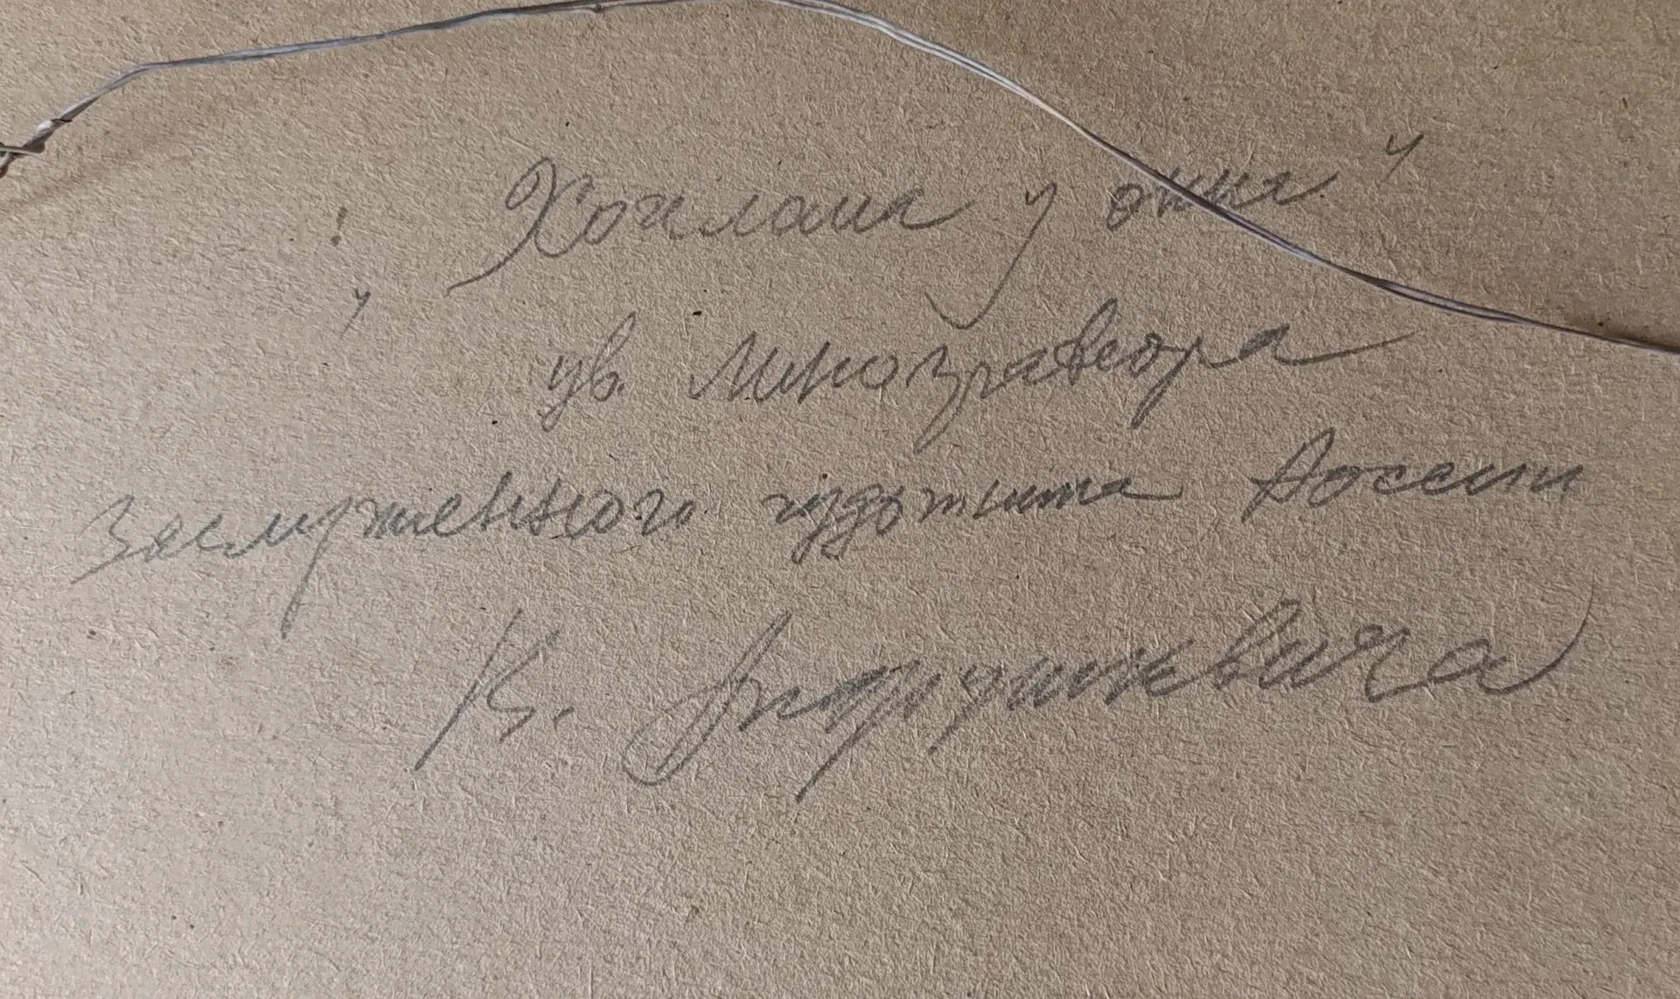 "Хохлома у окна"
цв. линогравюра
заслуженного художника России
К. Андрушкевича